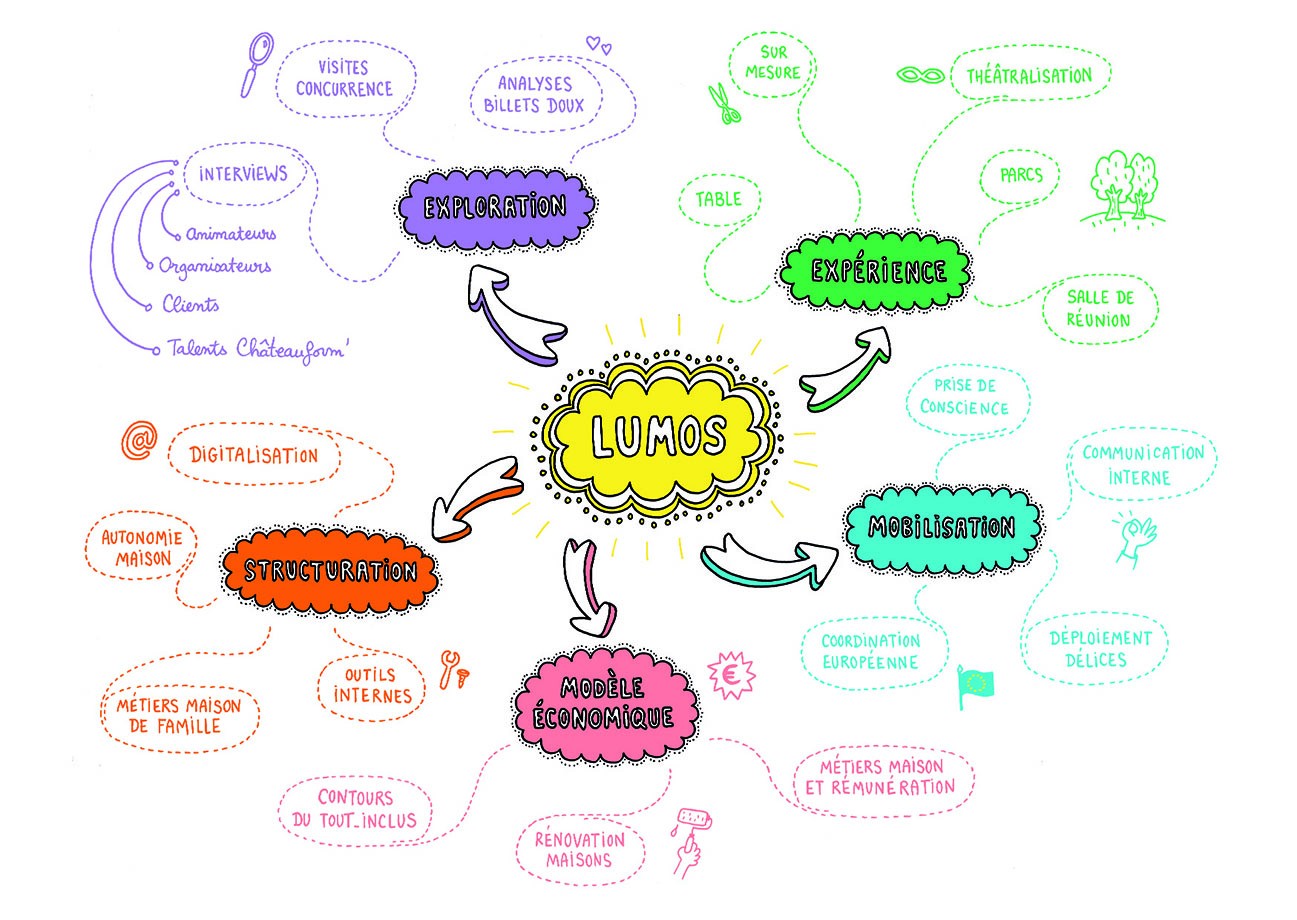 LUMOS
EXPLORATION
VISITES
CONCURRENCE
ANALYSES
BILLETS DOUX
INTERVIEWS
Animateurs
Organisateurs
Clients
Talents Châteauform'
EXPÉRIENCE
SUR
MESURE
THÉÂTRALISATION
TABLE
PARCS
SALLE DE
RÉUNION
MOBILISATION
PRISE DE
CONSCIENCE
COMMUNICATION
INTERNE
COORDINATION
EUROPÉENNE
DÉPLOIEMENT
DÉLICES
MODÈLE
ÉCONOMIQUE
€
MÉTIERS MAISON
ET RÉMUNÉRATION
RÉNOVATION
MAISONS
CONTOURS
DU TOUT-INCLUS
STRUCTURATION
@
DIGITALISATION
AUTONOMIE
MAISON
MÉTIERS MAISON
DE FAMILLE
OUTILS
INTERNES